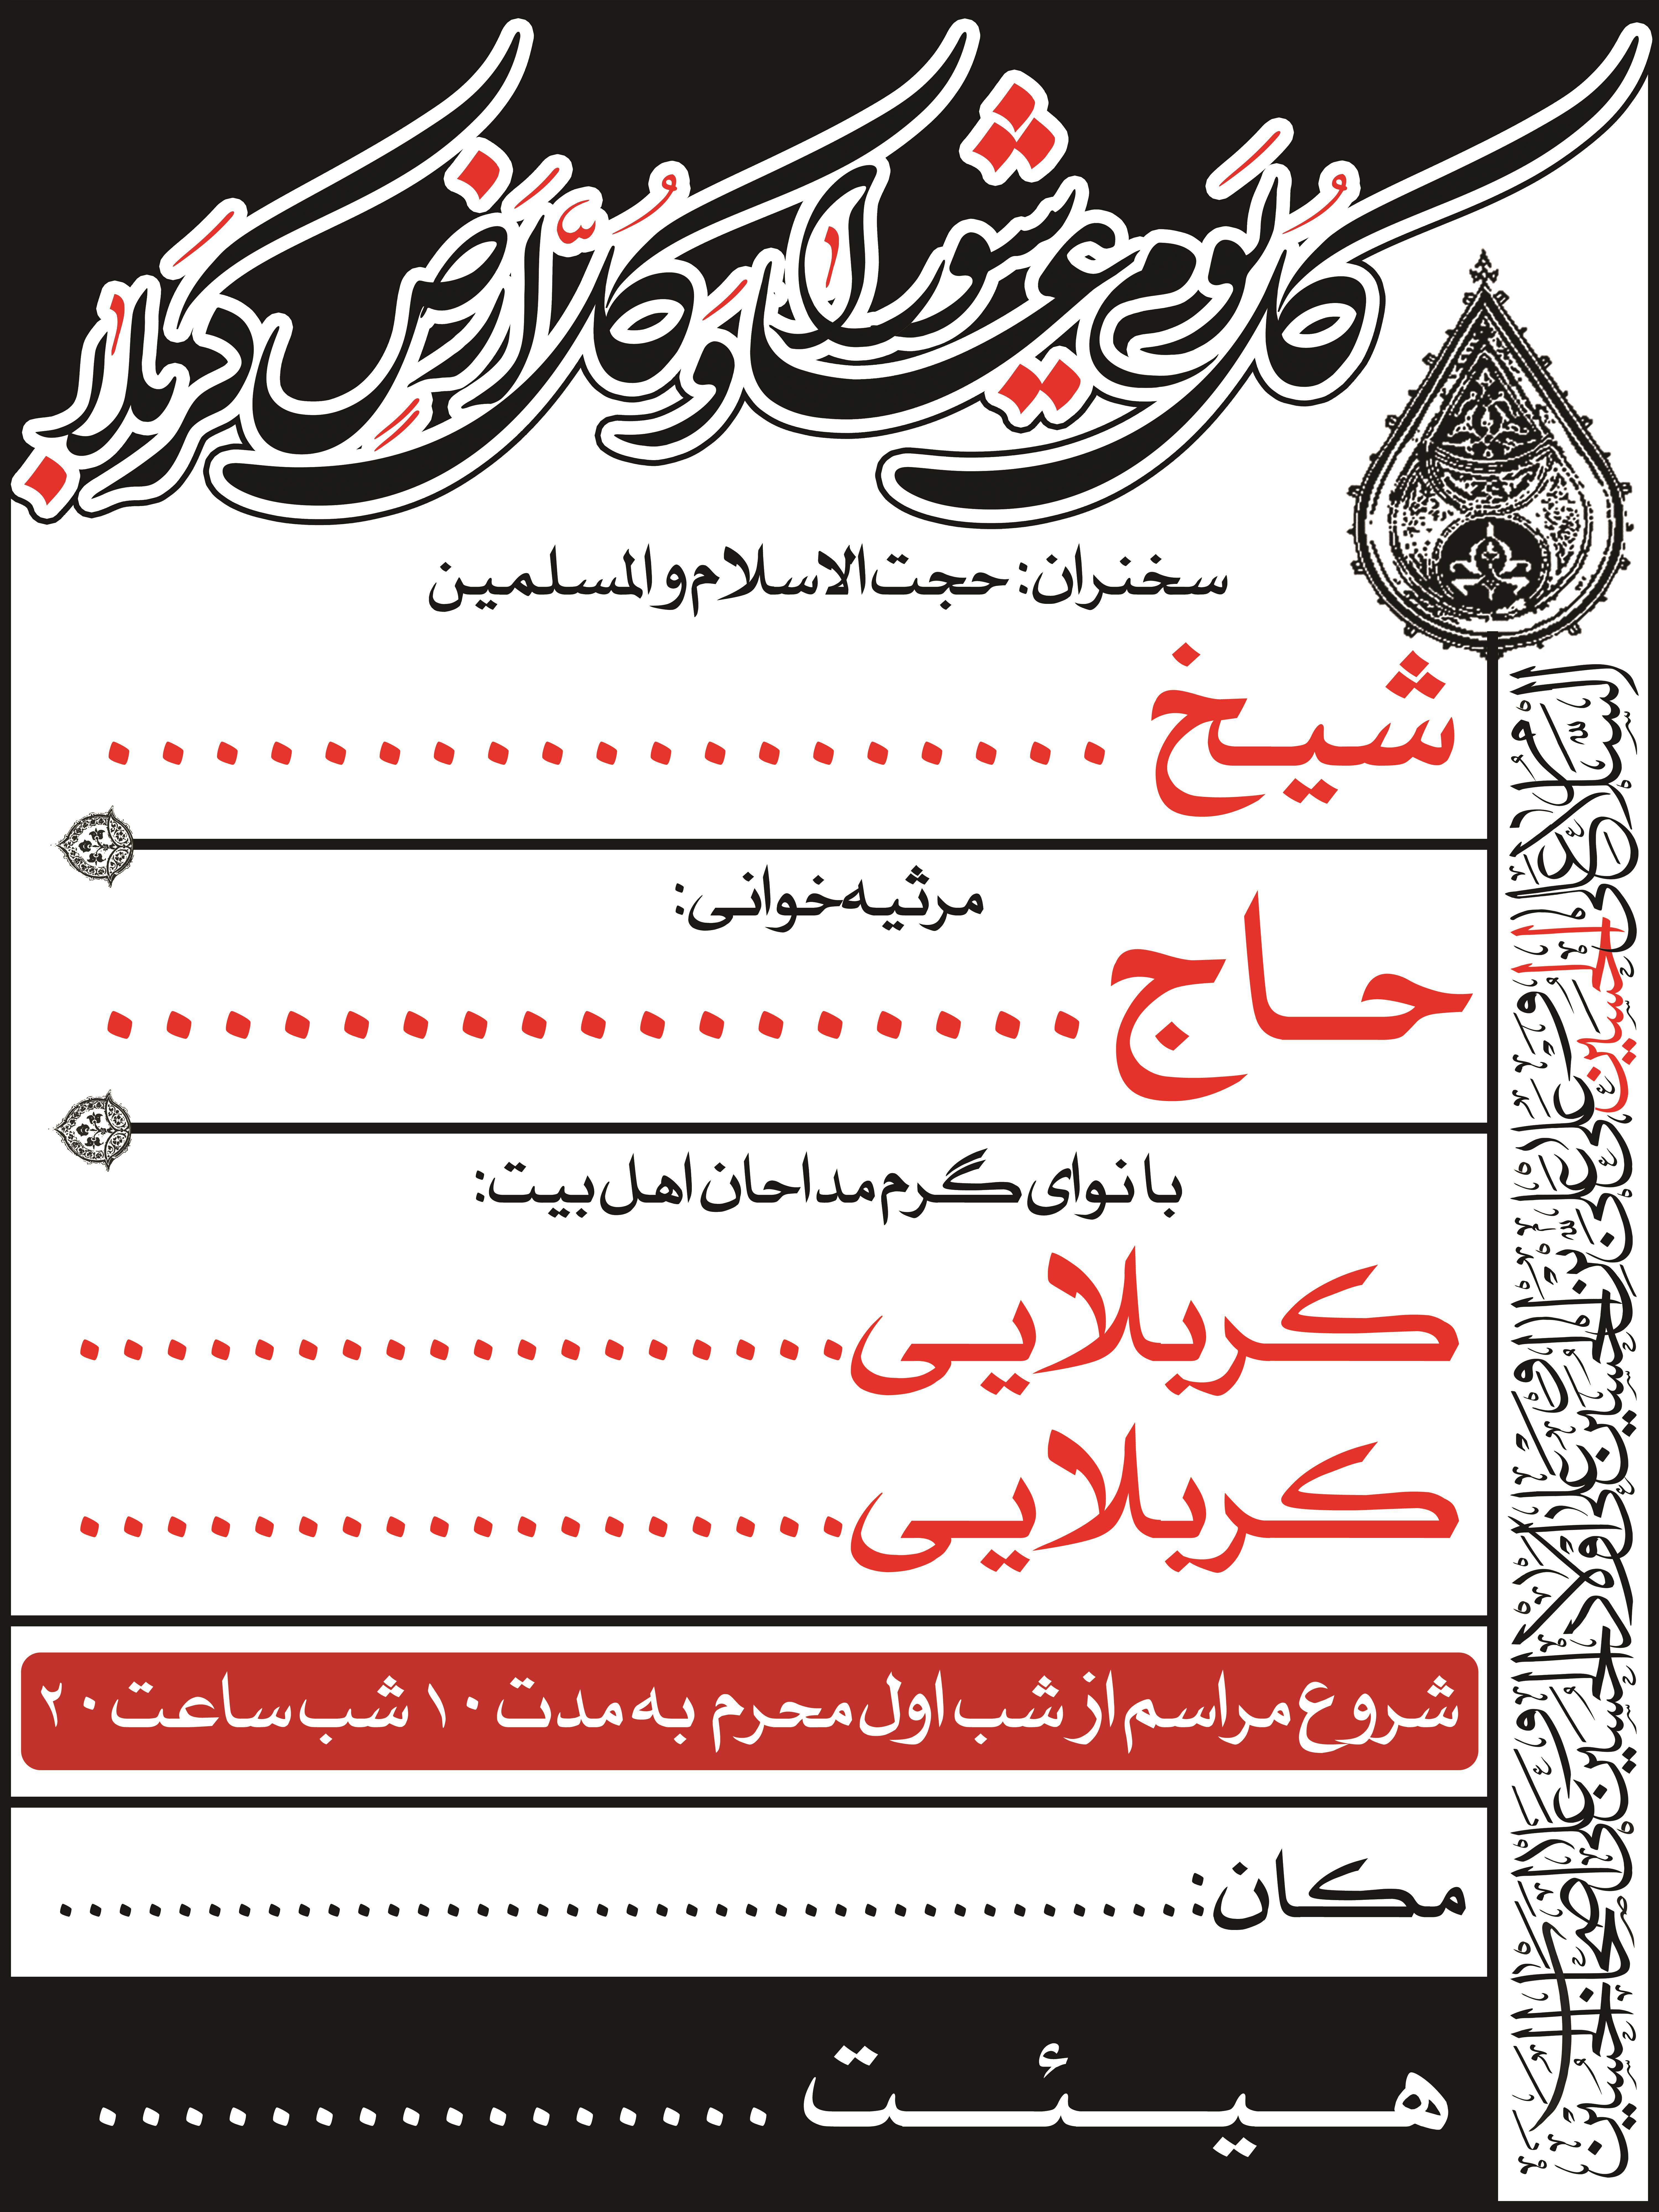 كُلُّ يَوْمٍ عاشُورا وَ كُلُّ أَرْضٍ كَرْبَلا
سخنران: حجت الاسلام و المسلمین
شیخ ...................
مرثیه‌خوانی:
حاج .................
با نوای گرم مداحان اهل بیت:
کربلایی ..................
کربلایی ..................
شروع مراسم از شب اول محرم به مدت ۱۰ شب ساعت ۲۰
مکان: ......................................
هیئت ................
السلام علی الحسین و علی علی بن الحسین و علی اولاد الحسین و علی اصحاب الحسین